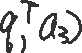 q₁ᵀa₃)